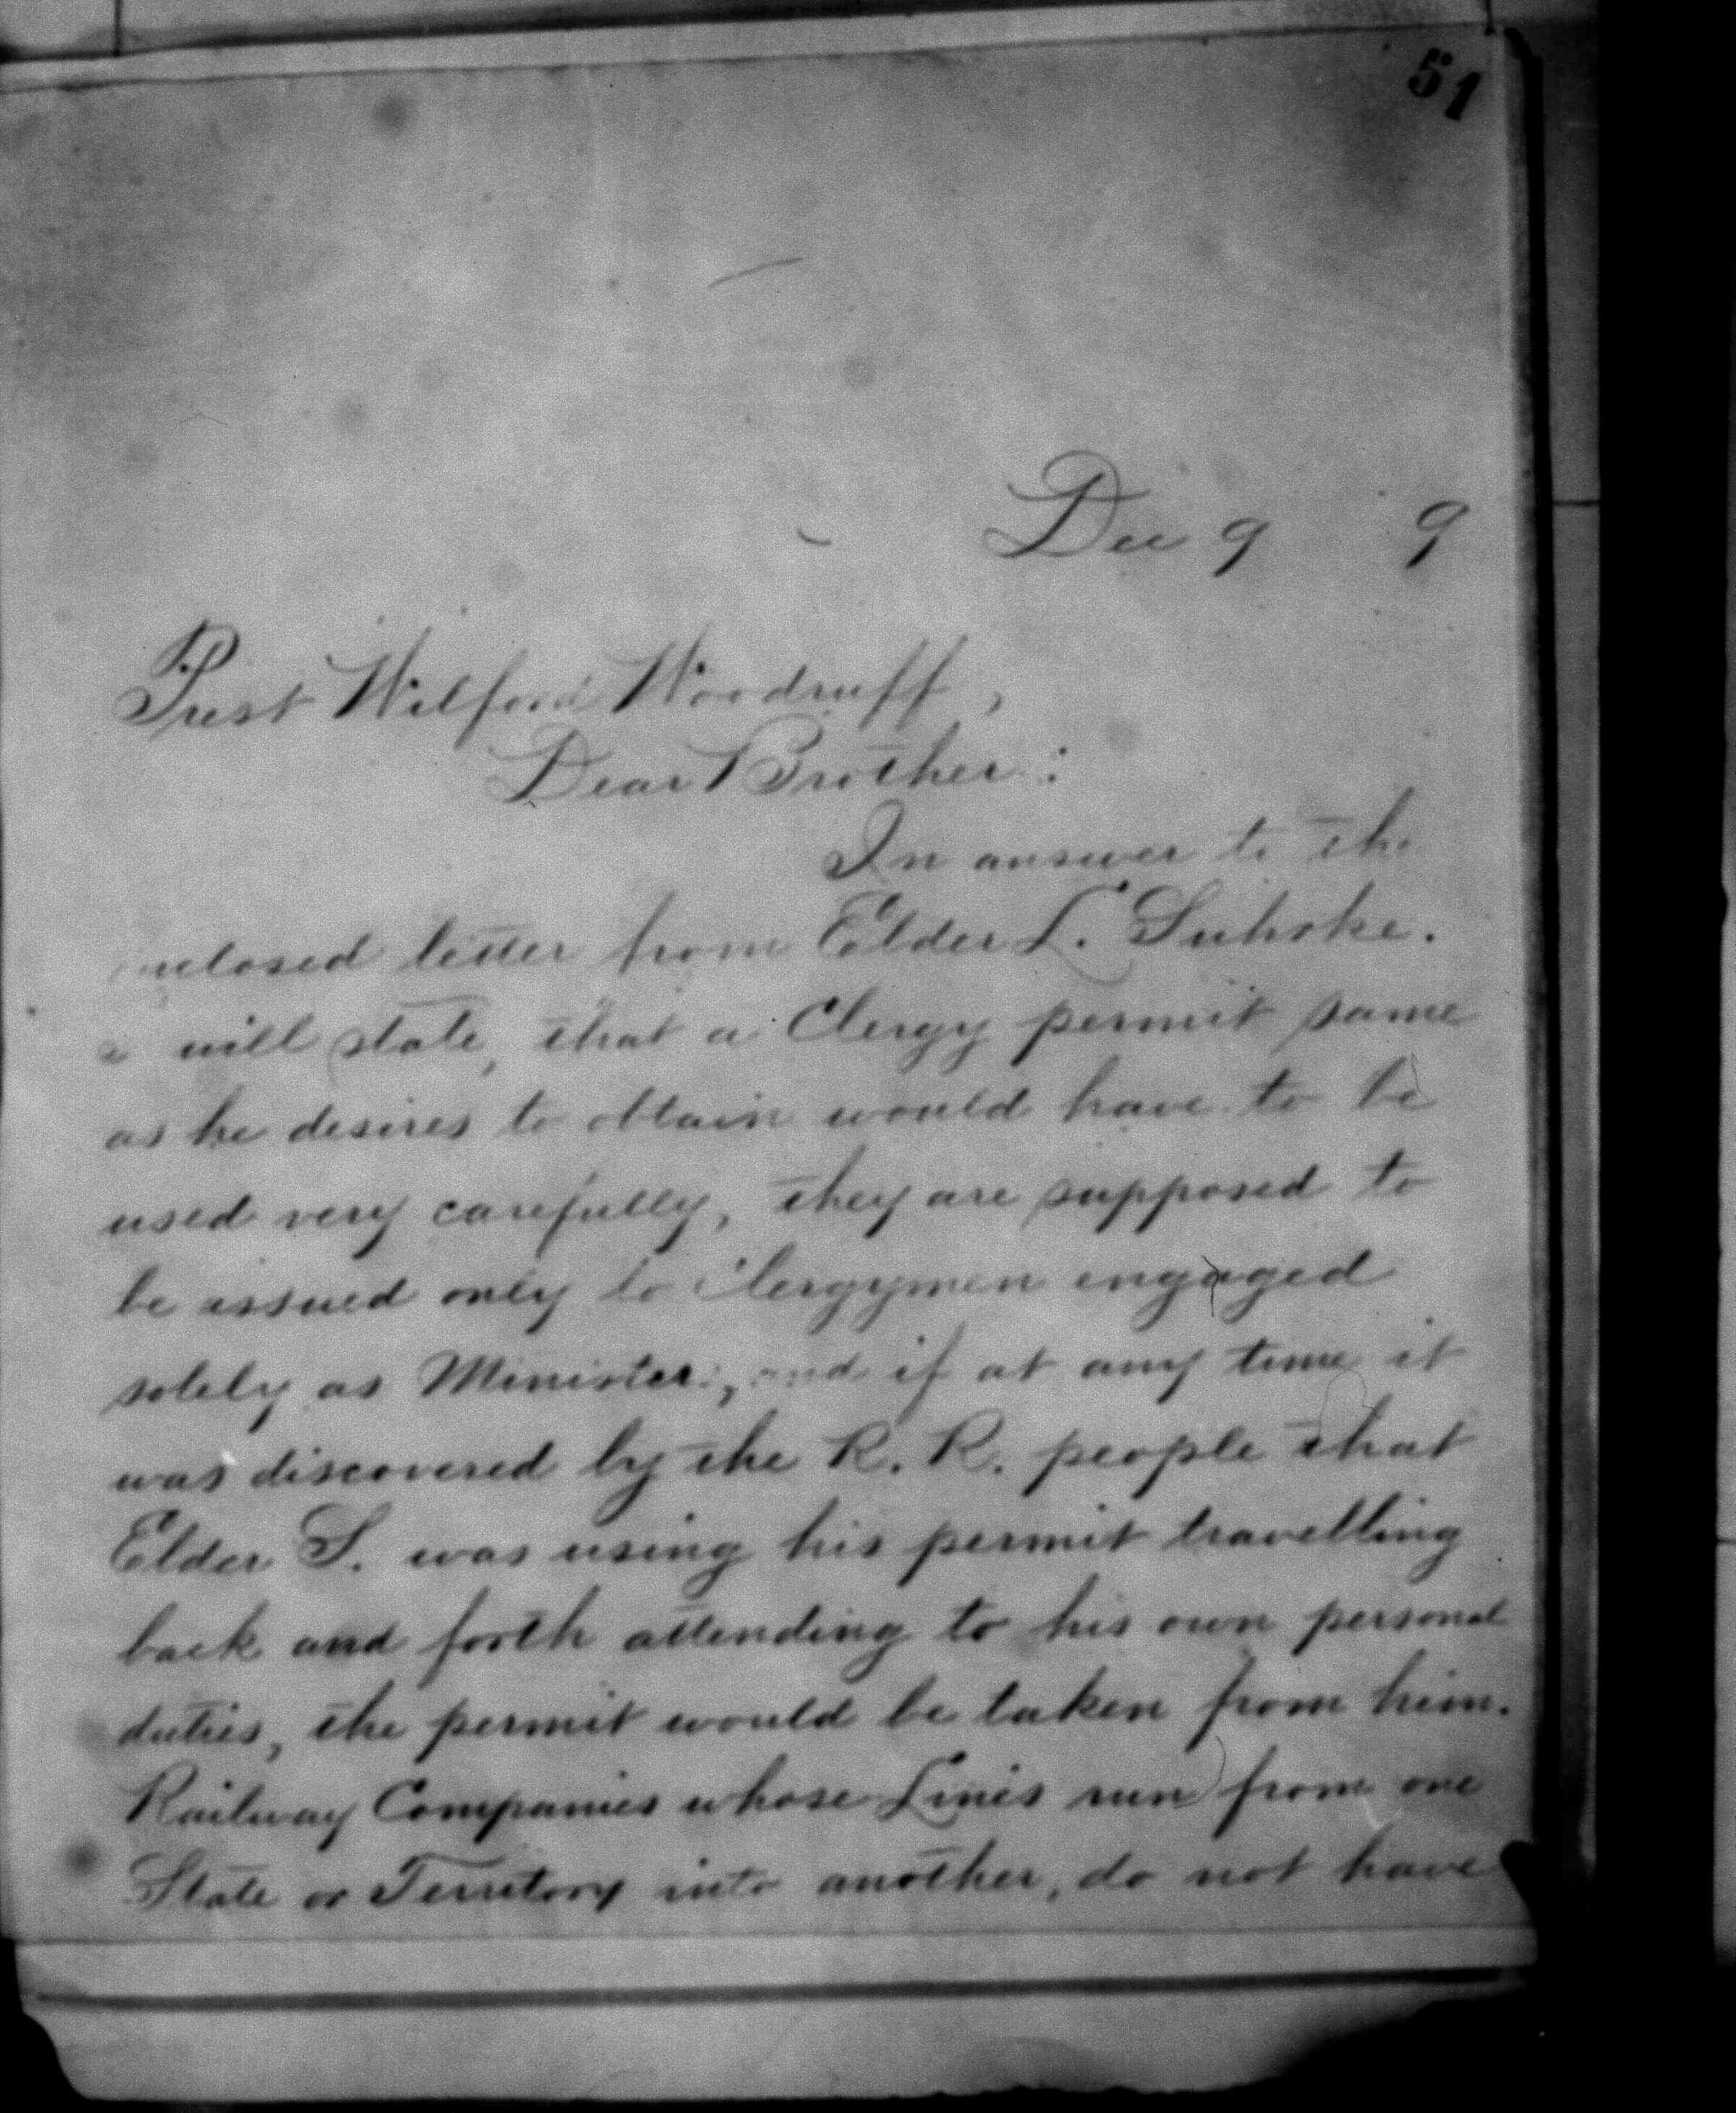 51
Dec 9 9
Prest Wilford Woodruff,
Dear Brother:
In answer to the
enclosed letter from Elder L. Suhrke.
I will state, that a Clergy permit same
as he desires to obtain would have to be
used very carefully, they are supposed to
be issued only to Clergymen engaged
solely as Ministers, and if at any time it
was discovered by the R. R. people that
Elder S. was using his permit travelling
back and forth attending to his own personal
duties, the permit would be taken from him.
Railway Companies whose Lines run from one
State or Territory into another, do not have